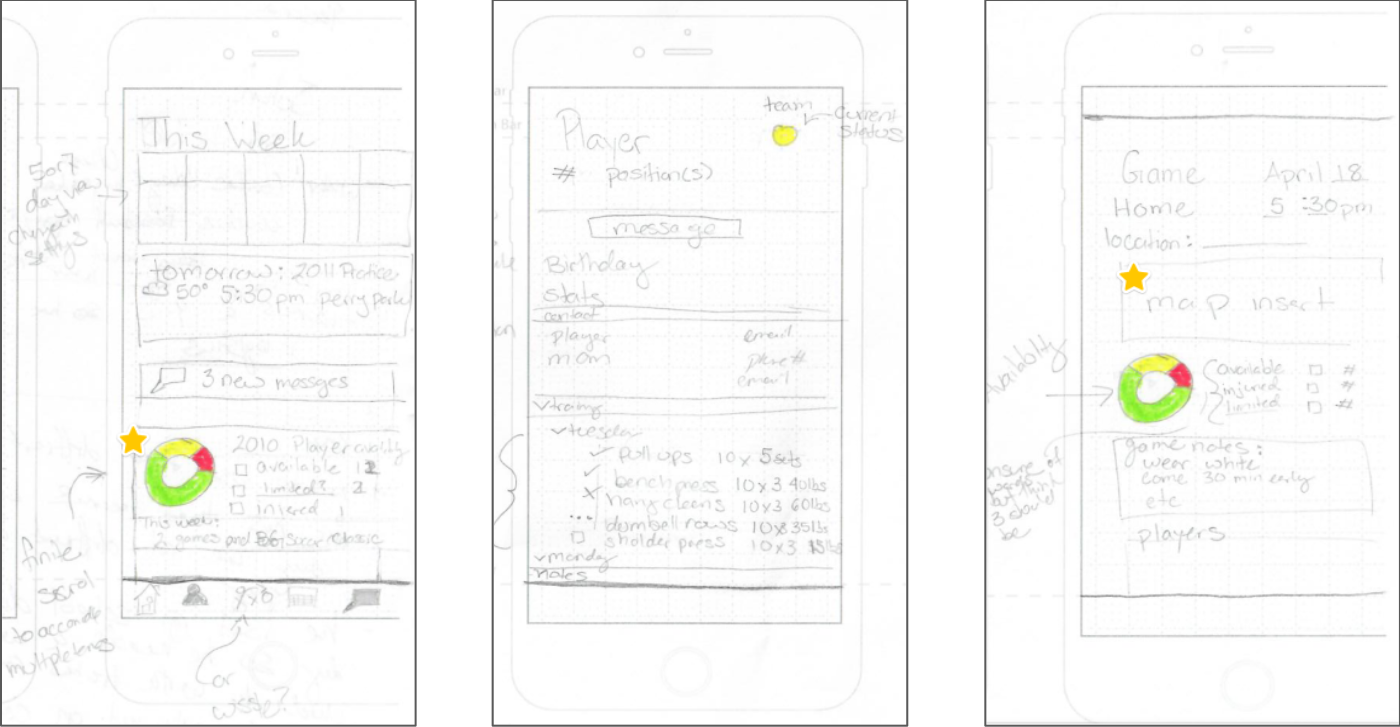 This Week
5 or 7
day view
change in
settings
tomorrow: 2011 Practice
50° 5:30 pm perry park
3 new messges
2010 Player
available 12
limited? 2
injured 1
This week:
2 games and Soccer Classic
finite
to
or
Player
team
current
status
# position(s)
message
Birthday
Stats
contact
player email
mom phone #
email
training
tuesday
pull ups 10 x 5 sets
bench press 10 x 3 40lbs
hang cleans 10 x 3 60lbs
dumbell rows 10 x 8 35lbs
sholder press 10 x 3 15lbs
monday
notes
Game April 18
Home 5:30pm
location:
map insert
Availability
available #
injured #
limited #
game notes:
wear white
come 30 min early
etc
players
but think
3 should
be